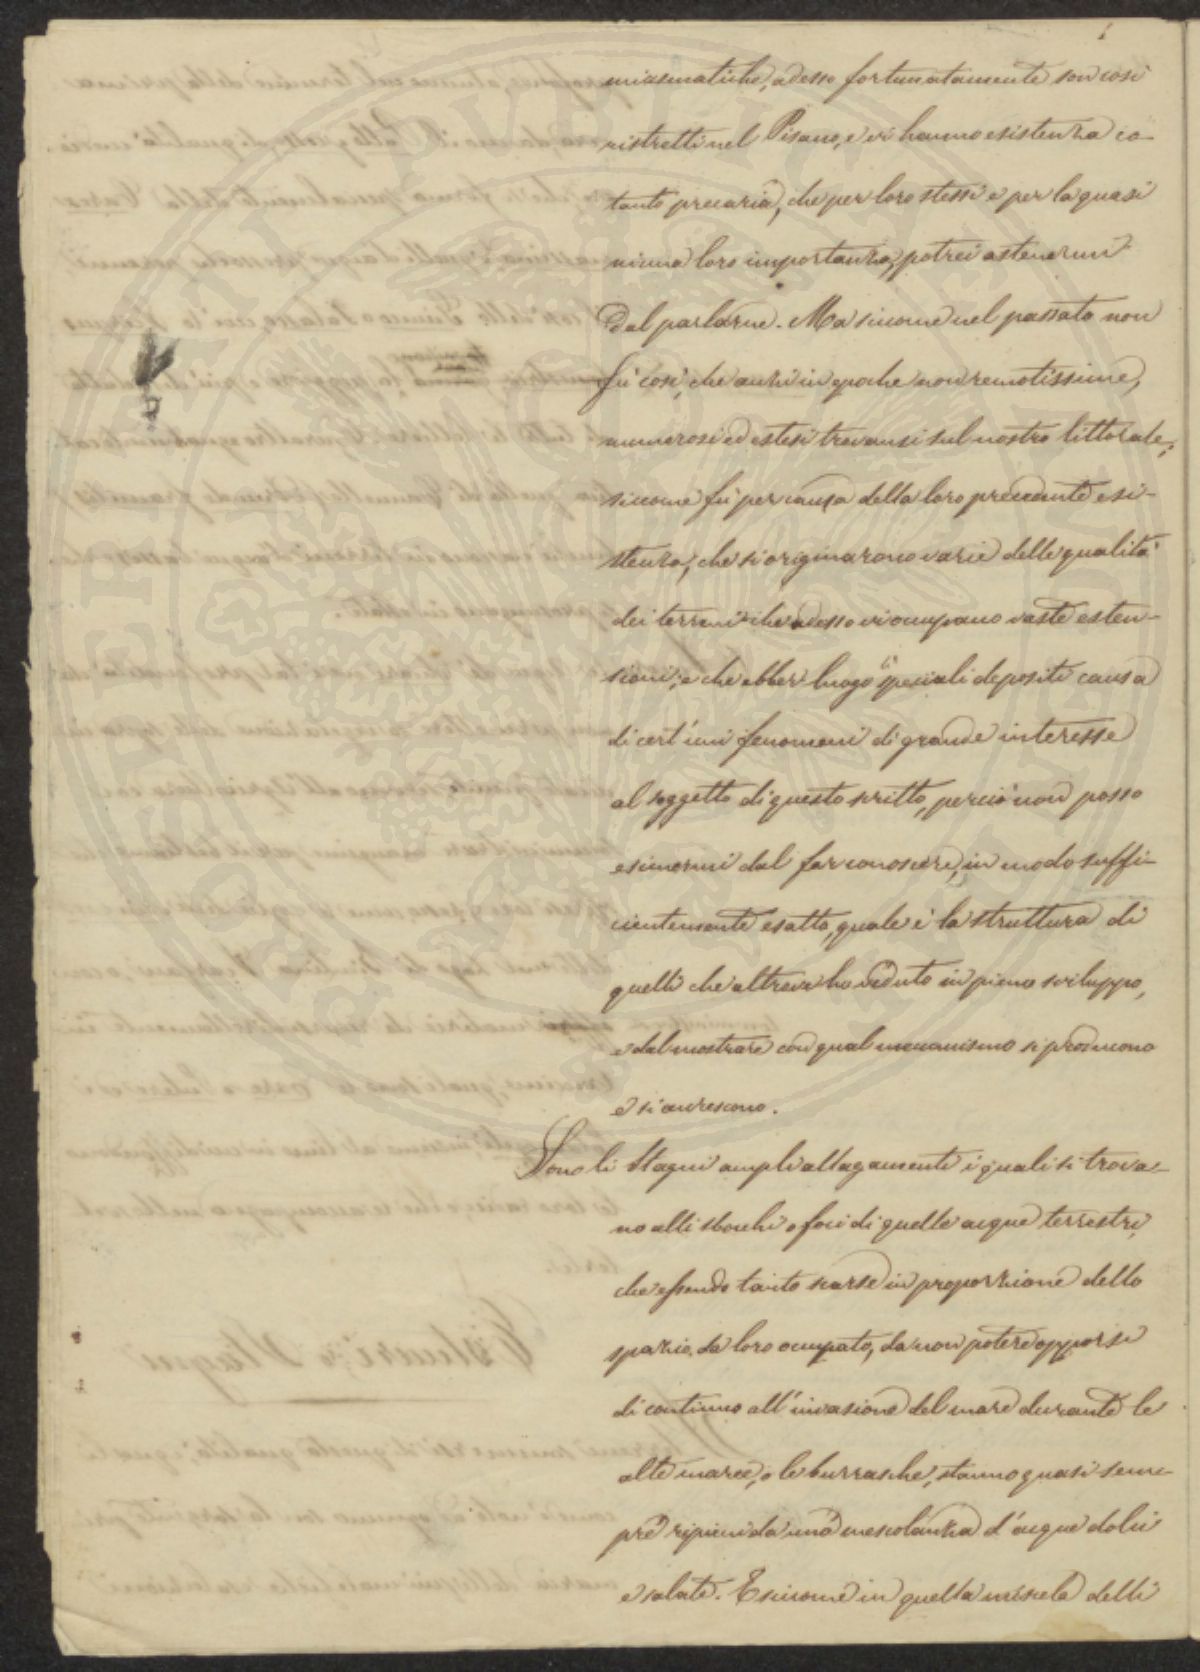 miasmatiche, adesso fortunatamente son così
ristretti nel Pisano, e vi hanno esistenza co-
tanto precaria, che per loro stessi e per la quasi
niuna loro importanza, potrei astenermi
dal parlarne. Ma siccome nel passato non
fù così, che anzi in epoche non remotissime,
numerosi ed estesi trovansi sul nostro littorale;
siccome fù per causa della loro precedente esi-
stenza, che si originarono varie delle qualità
dei terreni che adesso vi occupano vaste esten-
sioni; e che ebber luogo li speciali depositi causa
di cert'uni fenomeni di grande interesse
al soggetto di questo scritto, perciò non posso
esimermi dal far conoscere, in modo suffi-
cientemente esatto, quale è la struttura di
quelli che altrove ho veduto in pieno sviluppo,
e dal mostrare con qual meccanismo si producono
e si accrescono.
Sono li Stagni ampli allagamenti i quali si trova-
no alli sbocchi o foci di quelle acque terrestri,
che essendo tanto scarse in proporzione dello
spazio da loro occupato, da non potere opporsi
di continuo all'invasione del mare durante le
alte maree, o le burrasche, stanno quasi sem-
pre ripieni da una mescolanza d'acque dolci
e salate. E siccome in quella miscela delli